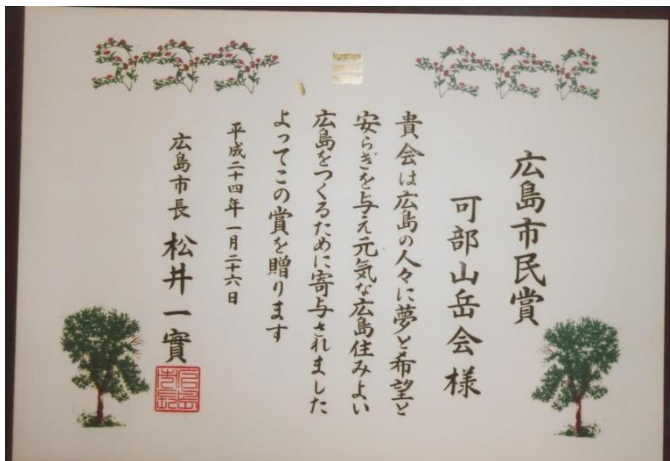 広島市民賞
可部山岳会様
貴会は広島の人々に夢と希望と
安らぎを与え元気な広島住みよい
広島をつくるために寄与されました
よってこの賞を贈ります
平成二十四年一月二十六日
広島市長 松井一實